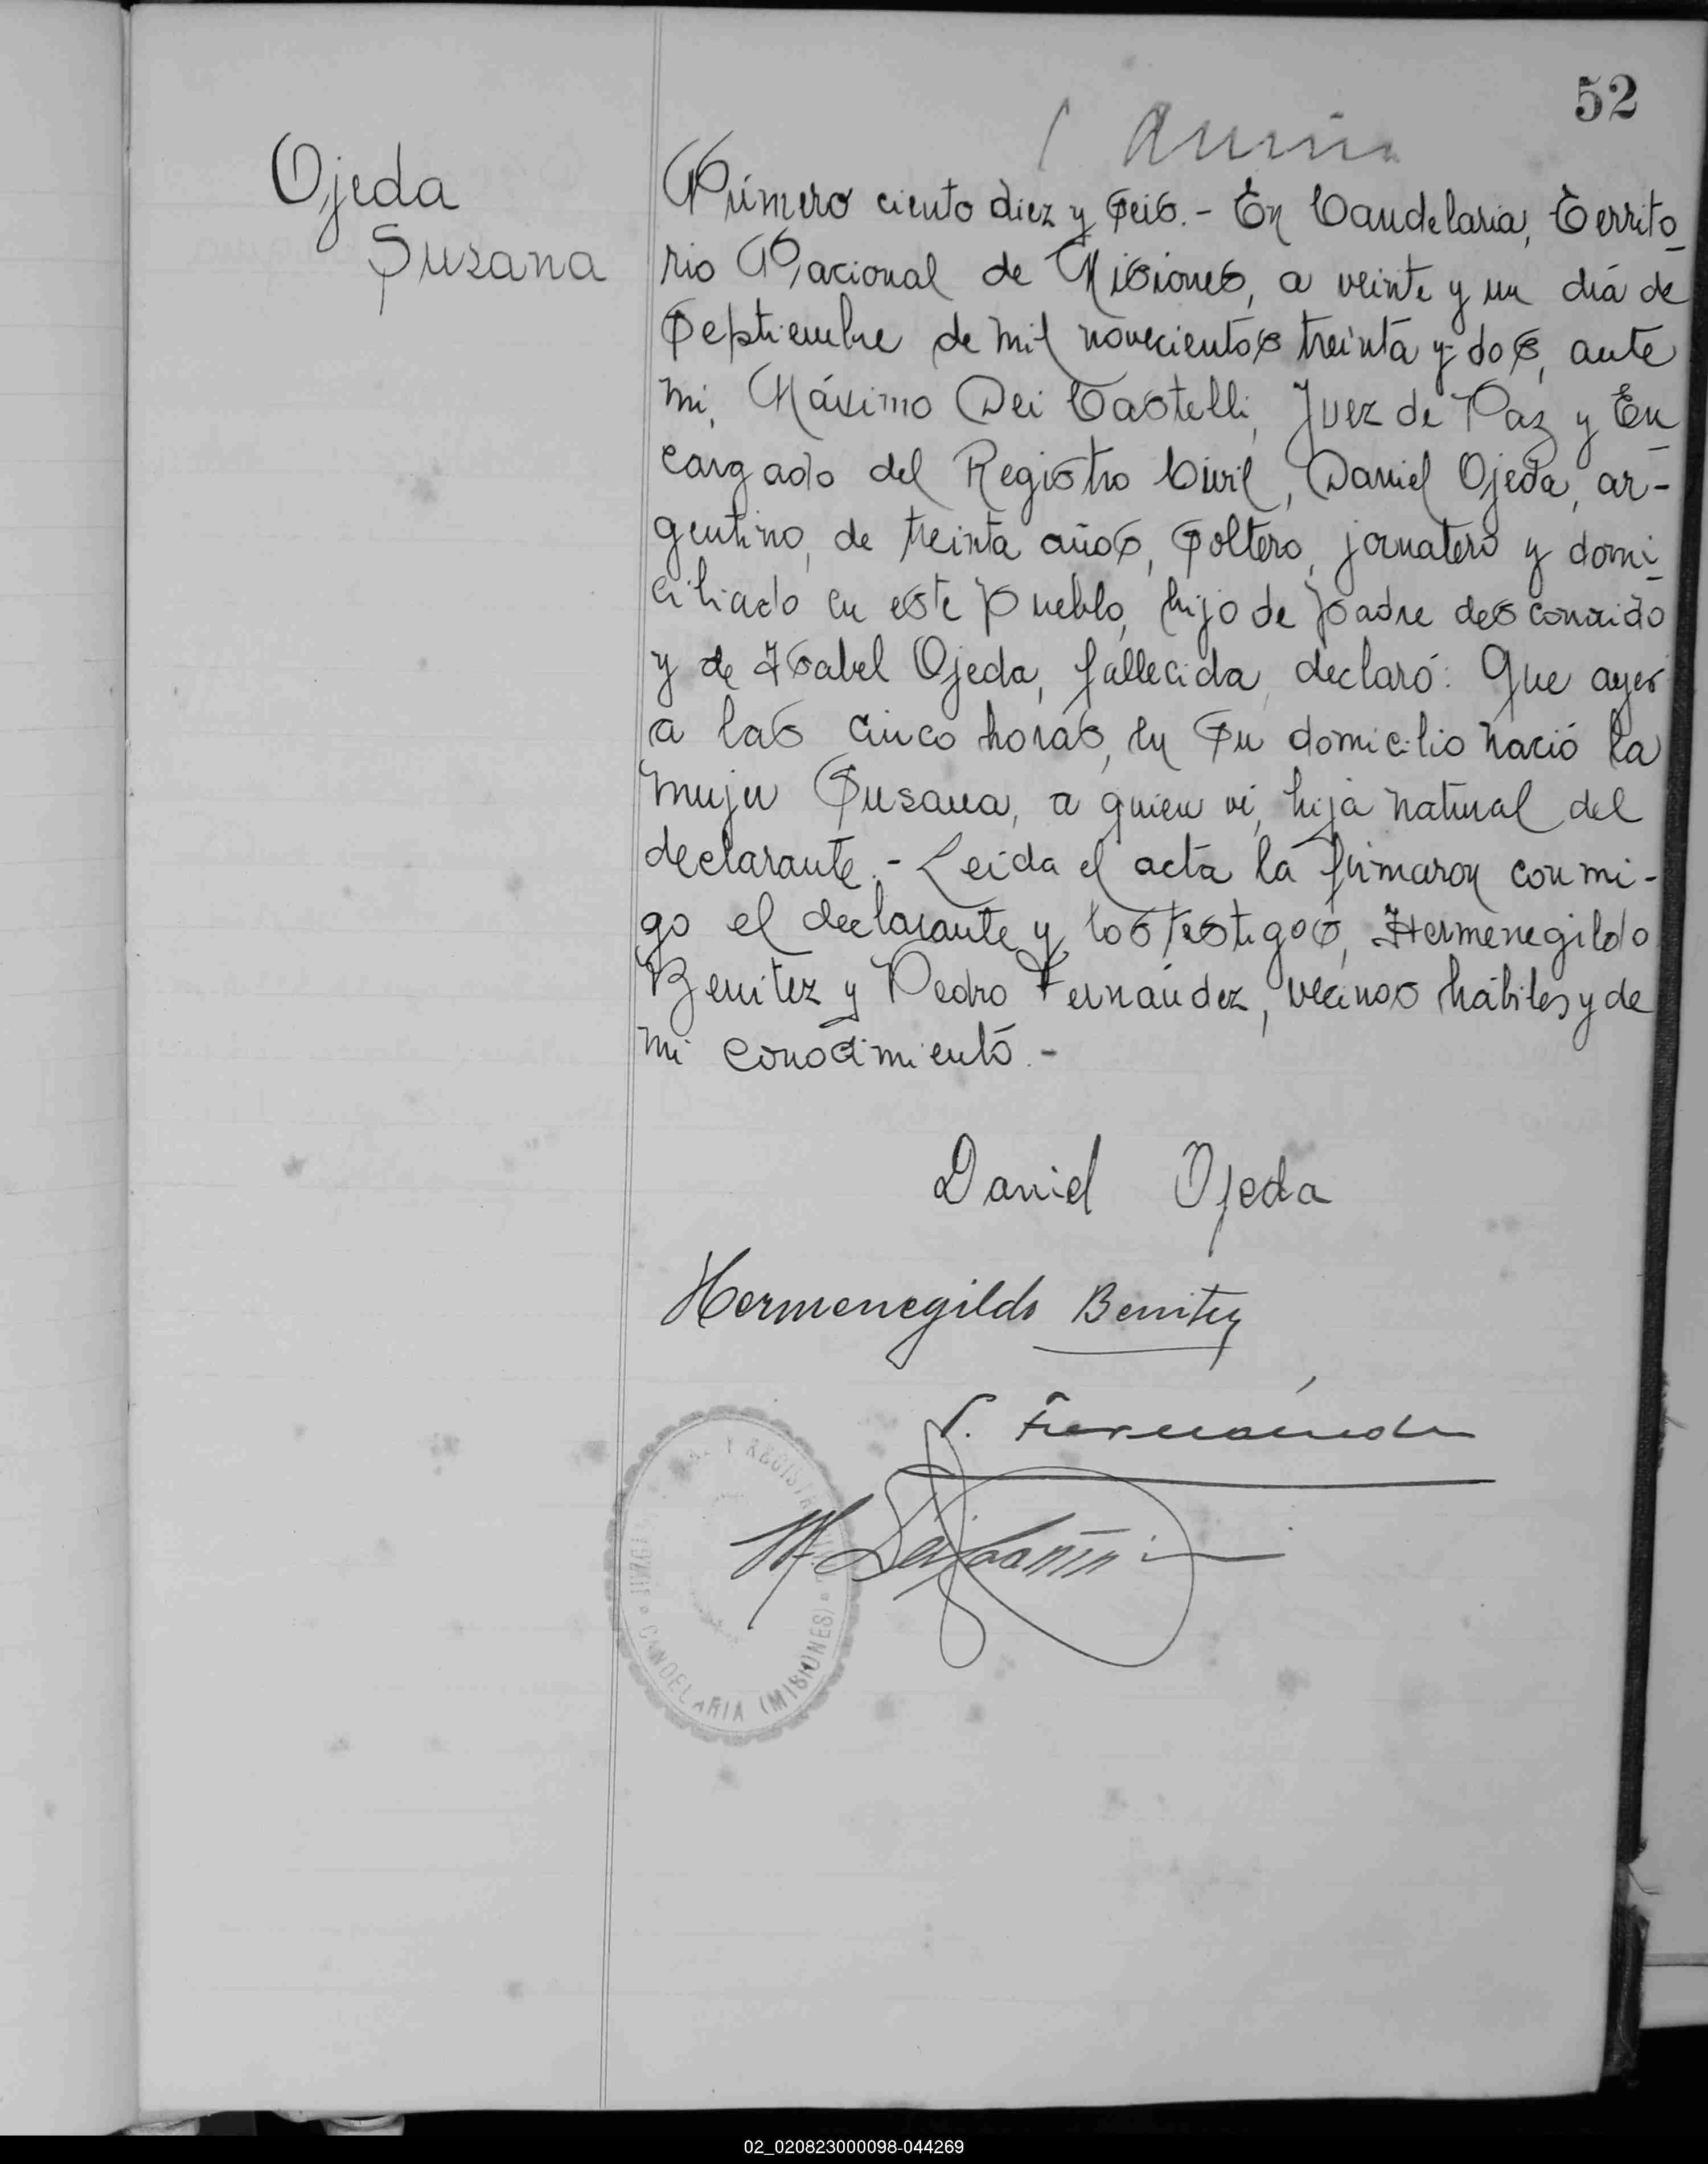 52
Ojeda
Susana
Número ciento diez y seis.- En Candelaria, Territo-
rio Nacional de Misiones, a veinte y un día de
Septiembre de mil novecientos treinta y dos, ante
mi, Máximo Dei Castelli, Juez de Paz y En-
cargado del Registro Civil, Daniel Ojeda, ar-
gentino, de treinta años, soltero, jornalero y domi-
ciliado en este pueblo, hijo de padre desconocido
y de Isabel Ojeda, fallecida, declaró: Que ayer
a las cinco horas, en su domicilio nació la
mujer Susana, a quien vi, hija natural del
declarante.- Leida el acta la firmaron conmi-
go el declarante y los testigos, Hermenegildo
Benitez y Pedro Fernández, vecinos hábiles y de
mi conocimiento.-
Daniel Ojeda
Hermenegildo Benitez
P. Fernández
Y REGISTR
CANDELARIA (MISIONES)
02_020823000098-044269